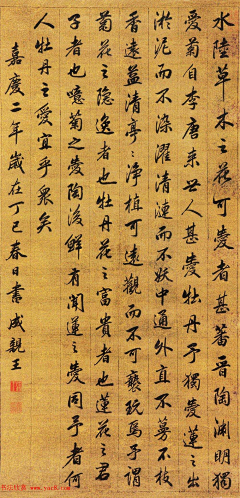 水陸草木之花可愛者甚蕃晉陶淵明獨
愛菊自李唐來世人甚愛牡丹予獨愛蓮之出
淤泥而不染濯清漣而不妖中通外直不蔓不枝
香遠益清亭亭淨植可遠觀而不可褻玩焉予謂
菊花之隱逸者也牡丹花之富貴者也蓮花之君
子者也噫菊之愛陶後鮮有聞蓮之愛同予者何
人牡丹之愛宜乎眾矣
嘉慶二年歲在丁巳春日書成親王